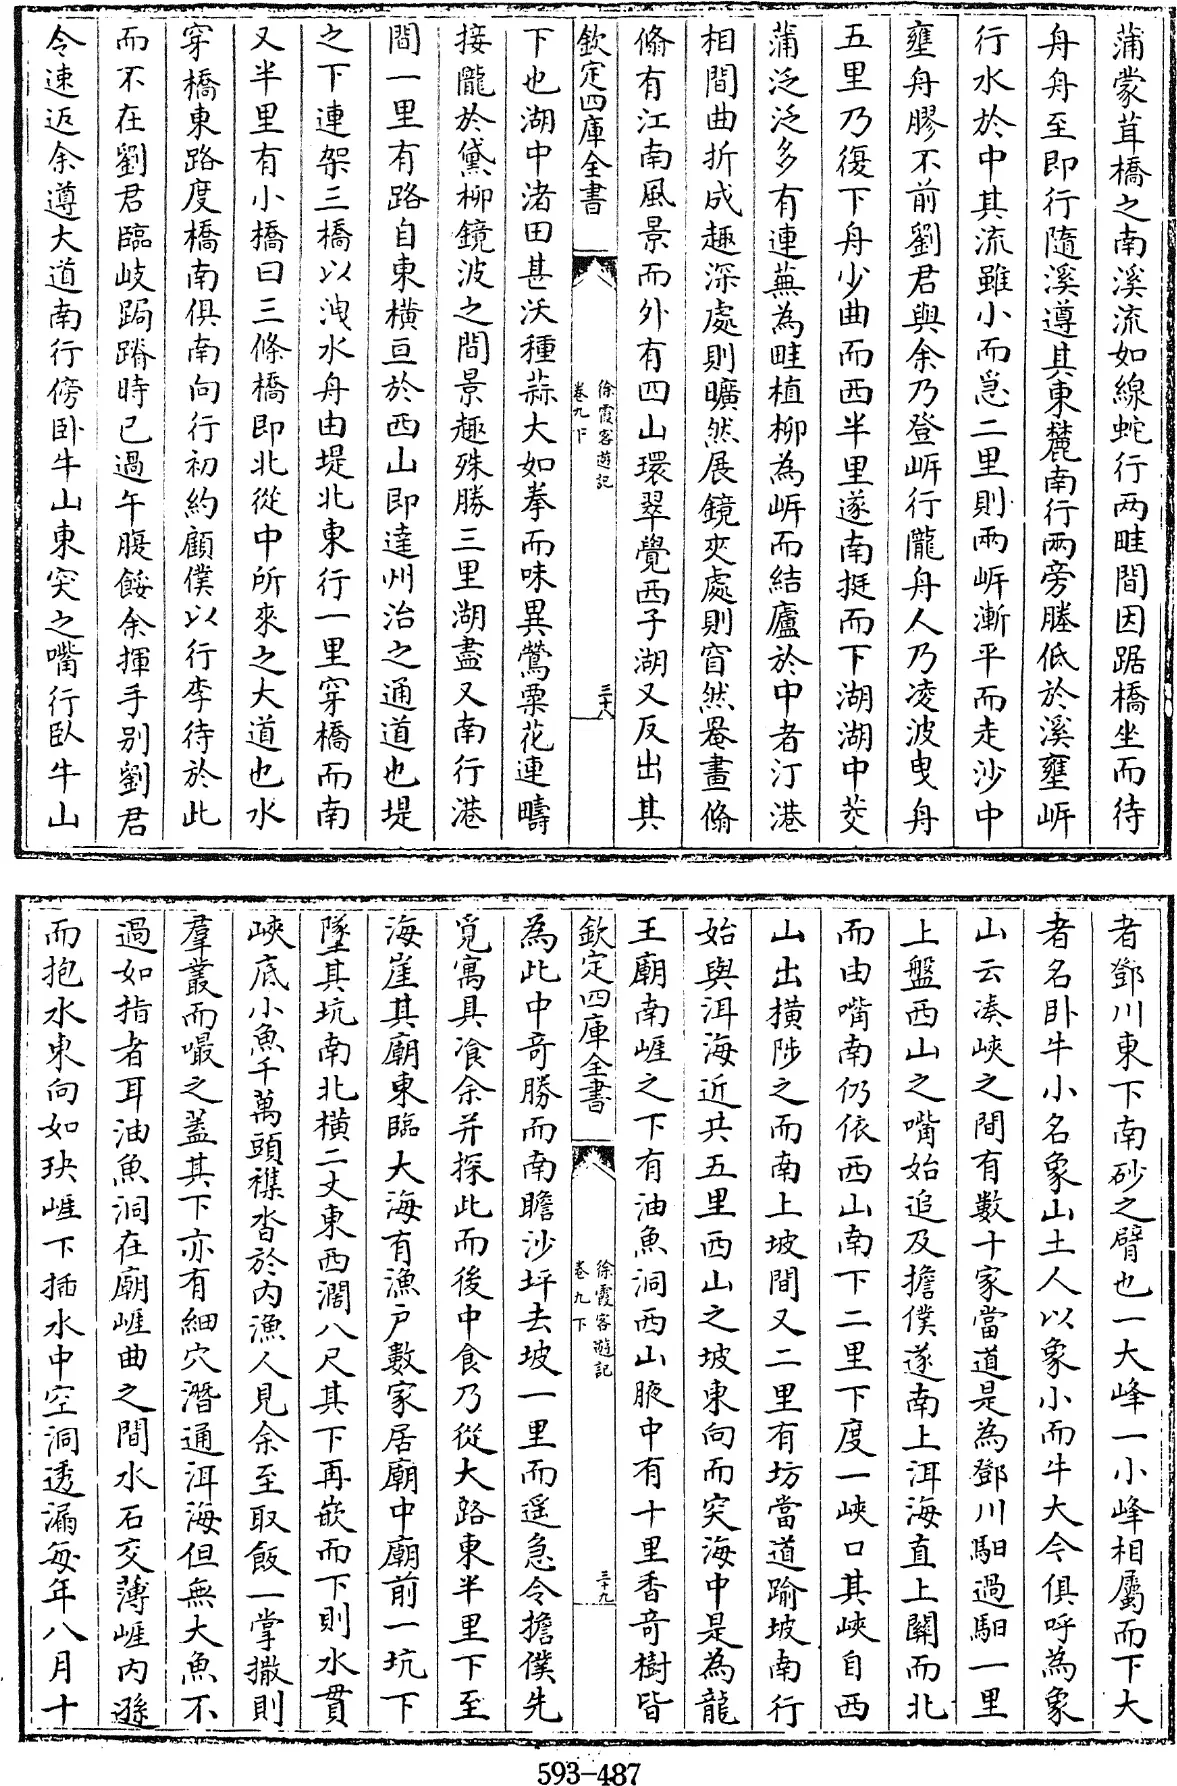 蒲蒙茸橋之南溪流如線蛇行兩畦間因踞橋坐而待
舟舟至即行隨溪遵其東麓南行兩旁塍低於溪壅岸
行水於中其流雖小而急二里則兩岸漸平而走沙中
壅舟膠不前劉君與余乃登岸行隴舟人乃凌波曵舟
五里乃復下舟少曲而西半里遂南挺而下湖湖中茭
蒲泛泛多有連蕪為畦植柳為岸而結廬於中者汀港
相間曲折成趣深處則曠然展鏡夾處則窅然罨畫翛
翛有江南風景而外有四山環翠覺西子湖又反出其
欽定四庫全書
徐霞客遊記
卷九下
三十八
下也湖中渚田甚沃種蒜大如拳而味異鶯粟花連疇
接隴於黛柳鏡波之間景趣殊勝三里湖盡又南行港
間一里有路自東橫亘於西山即達州治之通道也堤
之下連架三橋以洩水舟由堤北東行一里穿橋而南
又半里有小橋曰三條橋即北從中所來之大道也水
穿橋東路度橋南俱南向行初約顧僕以行李待於此
而不在劉君臨岐跼蹐時已過午腹餒余揮手别劉君
令速返余遵大道南行傍卧牛山東突之嘴行臥牛山
者鄧川東下南砂之臂也一大峰一小峰相屬而下大
者名卧牛小名象山土人以象小而牛大今俱呼為象
山云凑峽之間有數十家當道是為鄧川馹過馹一里
上盤西山之嘴始追及擔僕遂南上洱海直上關而北
而由嘴南仍依西山南下二里下度一峽口其峽自西
山出橫陟之而南上坡間又二里有坊當道踰坡南行
始與洱海近共五里西山之坡東向而突海中是為龍
王廟南崖之下有油魚洞西山腋中有十里香奇樹皆
欽定四庫全書
徐霞客遊記
卷九下
三十九
為此中奇勝而南瞻沙坪去坡一里而遥急令擔僕先
覓寓具飡余并探此而後中食乃從大路東半里下至
海崖其廟東臨大海有漁户數家居廟中廟前一坑下
墜其坑南北橫二丈東西濶八尺其下再嵌而下則水貫
峽底小魚千萬頭襍沓於内漁人見余至取飯一掌撒則
羣叢而嘬之蓋其下亦有細穴潛通洱海但無大魚不
過如指者耳油魚洞在廟崖曲之間水石交薄崖内遜
而抱水東向如玦崖下插水中空洞透漏每年八月十
593-487